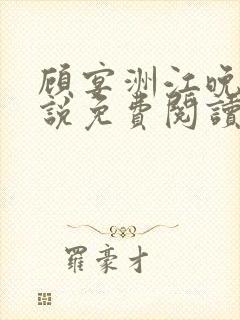 顧宴洲江晚
說免費閱讀
羅豪才